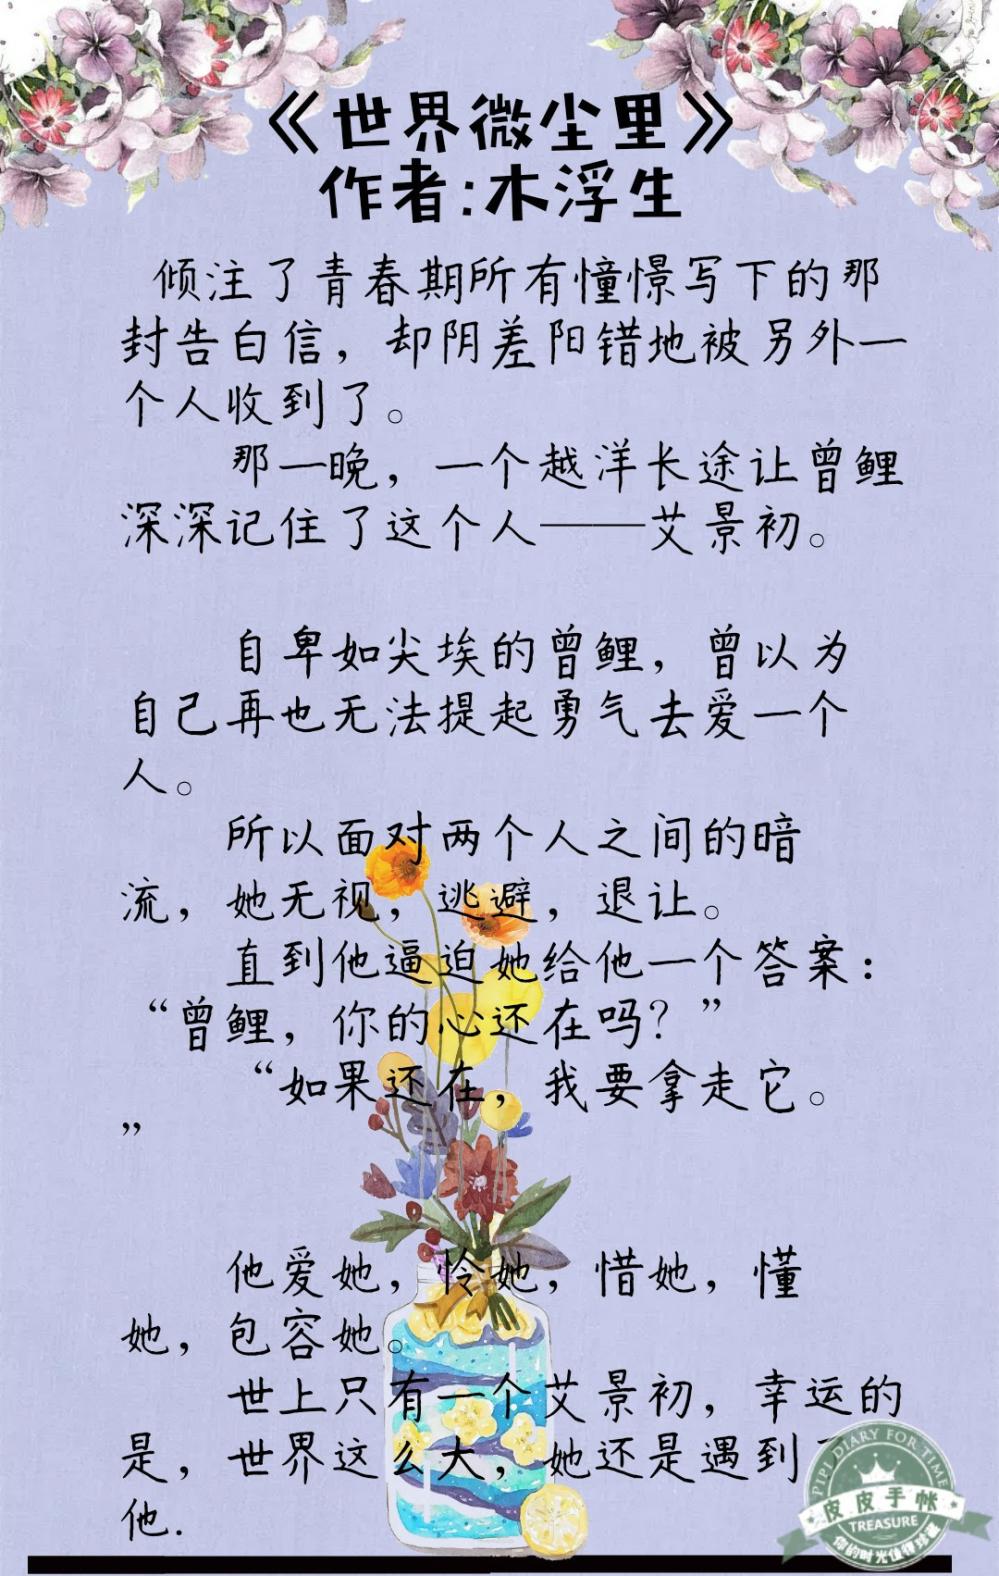 《世界微尘里》
作者:木浮生
倾注了青春期所有憧憬写下的那
封告白信，却阴差阳错地被另外一
个人收到了。
那一晚，一个越洋长途让曾鲤
深深记住了这个人——艾景初。
自卑如尖埃的曾鲤，曾以为
自己再也无法提起勇气去爱一个
人。
所以面对两个人之间的暗
流，她无视，逃避，退让。
直到他逼迫她给他一个答案：
“曾鲤，你的心还在吗？”
“如果还在，我要拿走它。
”
他爱她，怜她，惜她，懂
她，包容她。
世上只有一个艾景初，幸运的
是，世界这么大，她还是遇到
他.
PIPI DIARY FOR TIME
皮皮手帐
TREASURE
你的时光值得珍藏